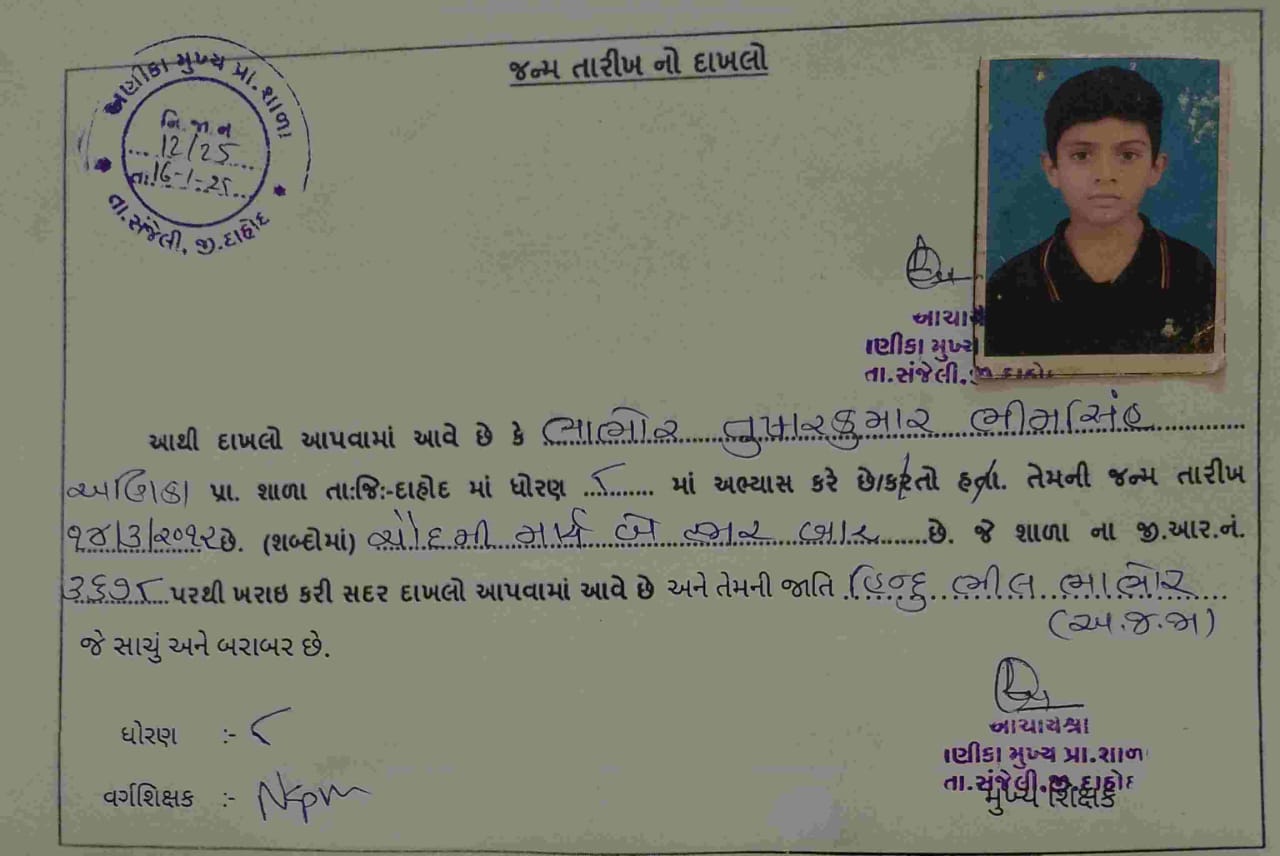 જન્મ તારીખ નો દાખલો
અણીકા મુખ્ય પ્રા. શાળા
નિ.જા.ન
12/25
તા.16-1-25
તા.સંજેલી, જી.દાહોદ
આચાર્ય
ણીકા મુખ્ય
તા.સંજેલી.જી.દાહોદ
આથી દાખલો આપવામાં આવે છે કે ભાભોર તુષારકુમાર ભીમસિંહ
અણિકા પ્રા. શાળા તા:જિ:-દાહોદ માં ધોરણ ૮ માં અભ્યાસ કરે છે/કરતો હતા. તેમની જન્મ તારીખ
૧૪/૩/૨૦૧૨ છે. (શબ્દોમાં) ચૌદમી માર્ચ બે હજાર બાર છે. જે શાળા ના જી.આર.નં.
૩૬૧૮ પરથી ખરાઇ કરી સદર દાખલો આપવામાં આવે છે અને તેમની જાતિ હિન્દુ ભીલ ભાભોર
(અ.જ.જા)
જે સાચું અને બરાબર છે.
ધોરણ :- ૮
વર્ગશિક્ષક :-
આચાર્યશ્રી
ણીકા મુખ્ય પ્રા.શાળ
તા.સંજેલી.જી.દાહોદ
મુખ્ય શિક્ષક